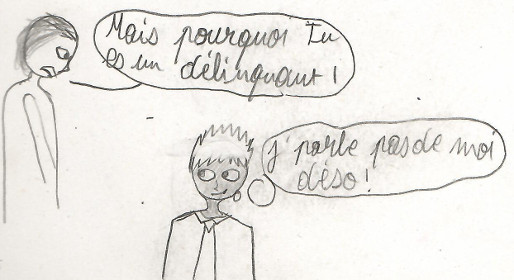 Mais pourquoi Tu
es un délinquant !
j' parle pas de moi
déso !